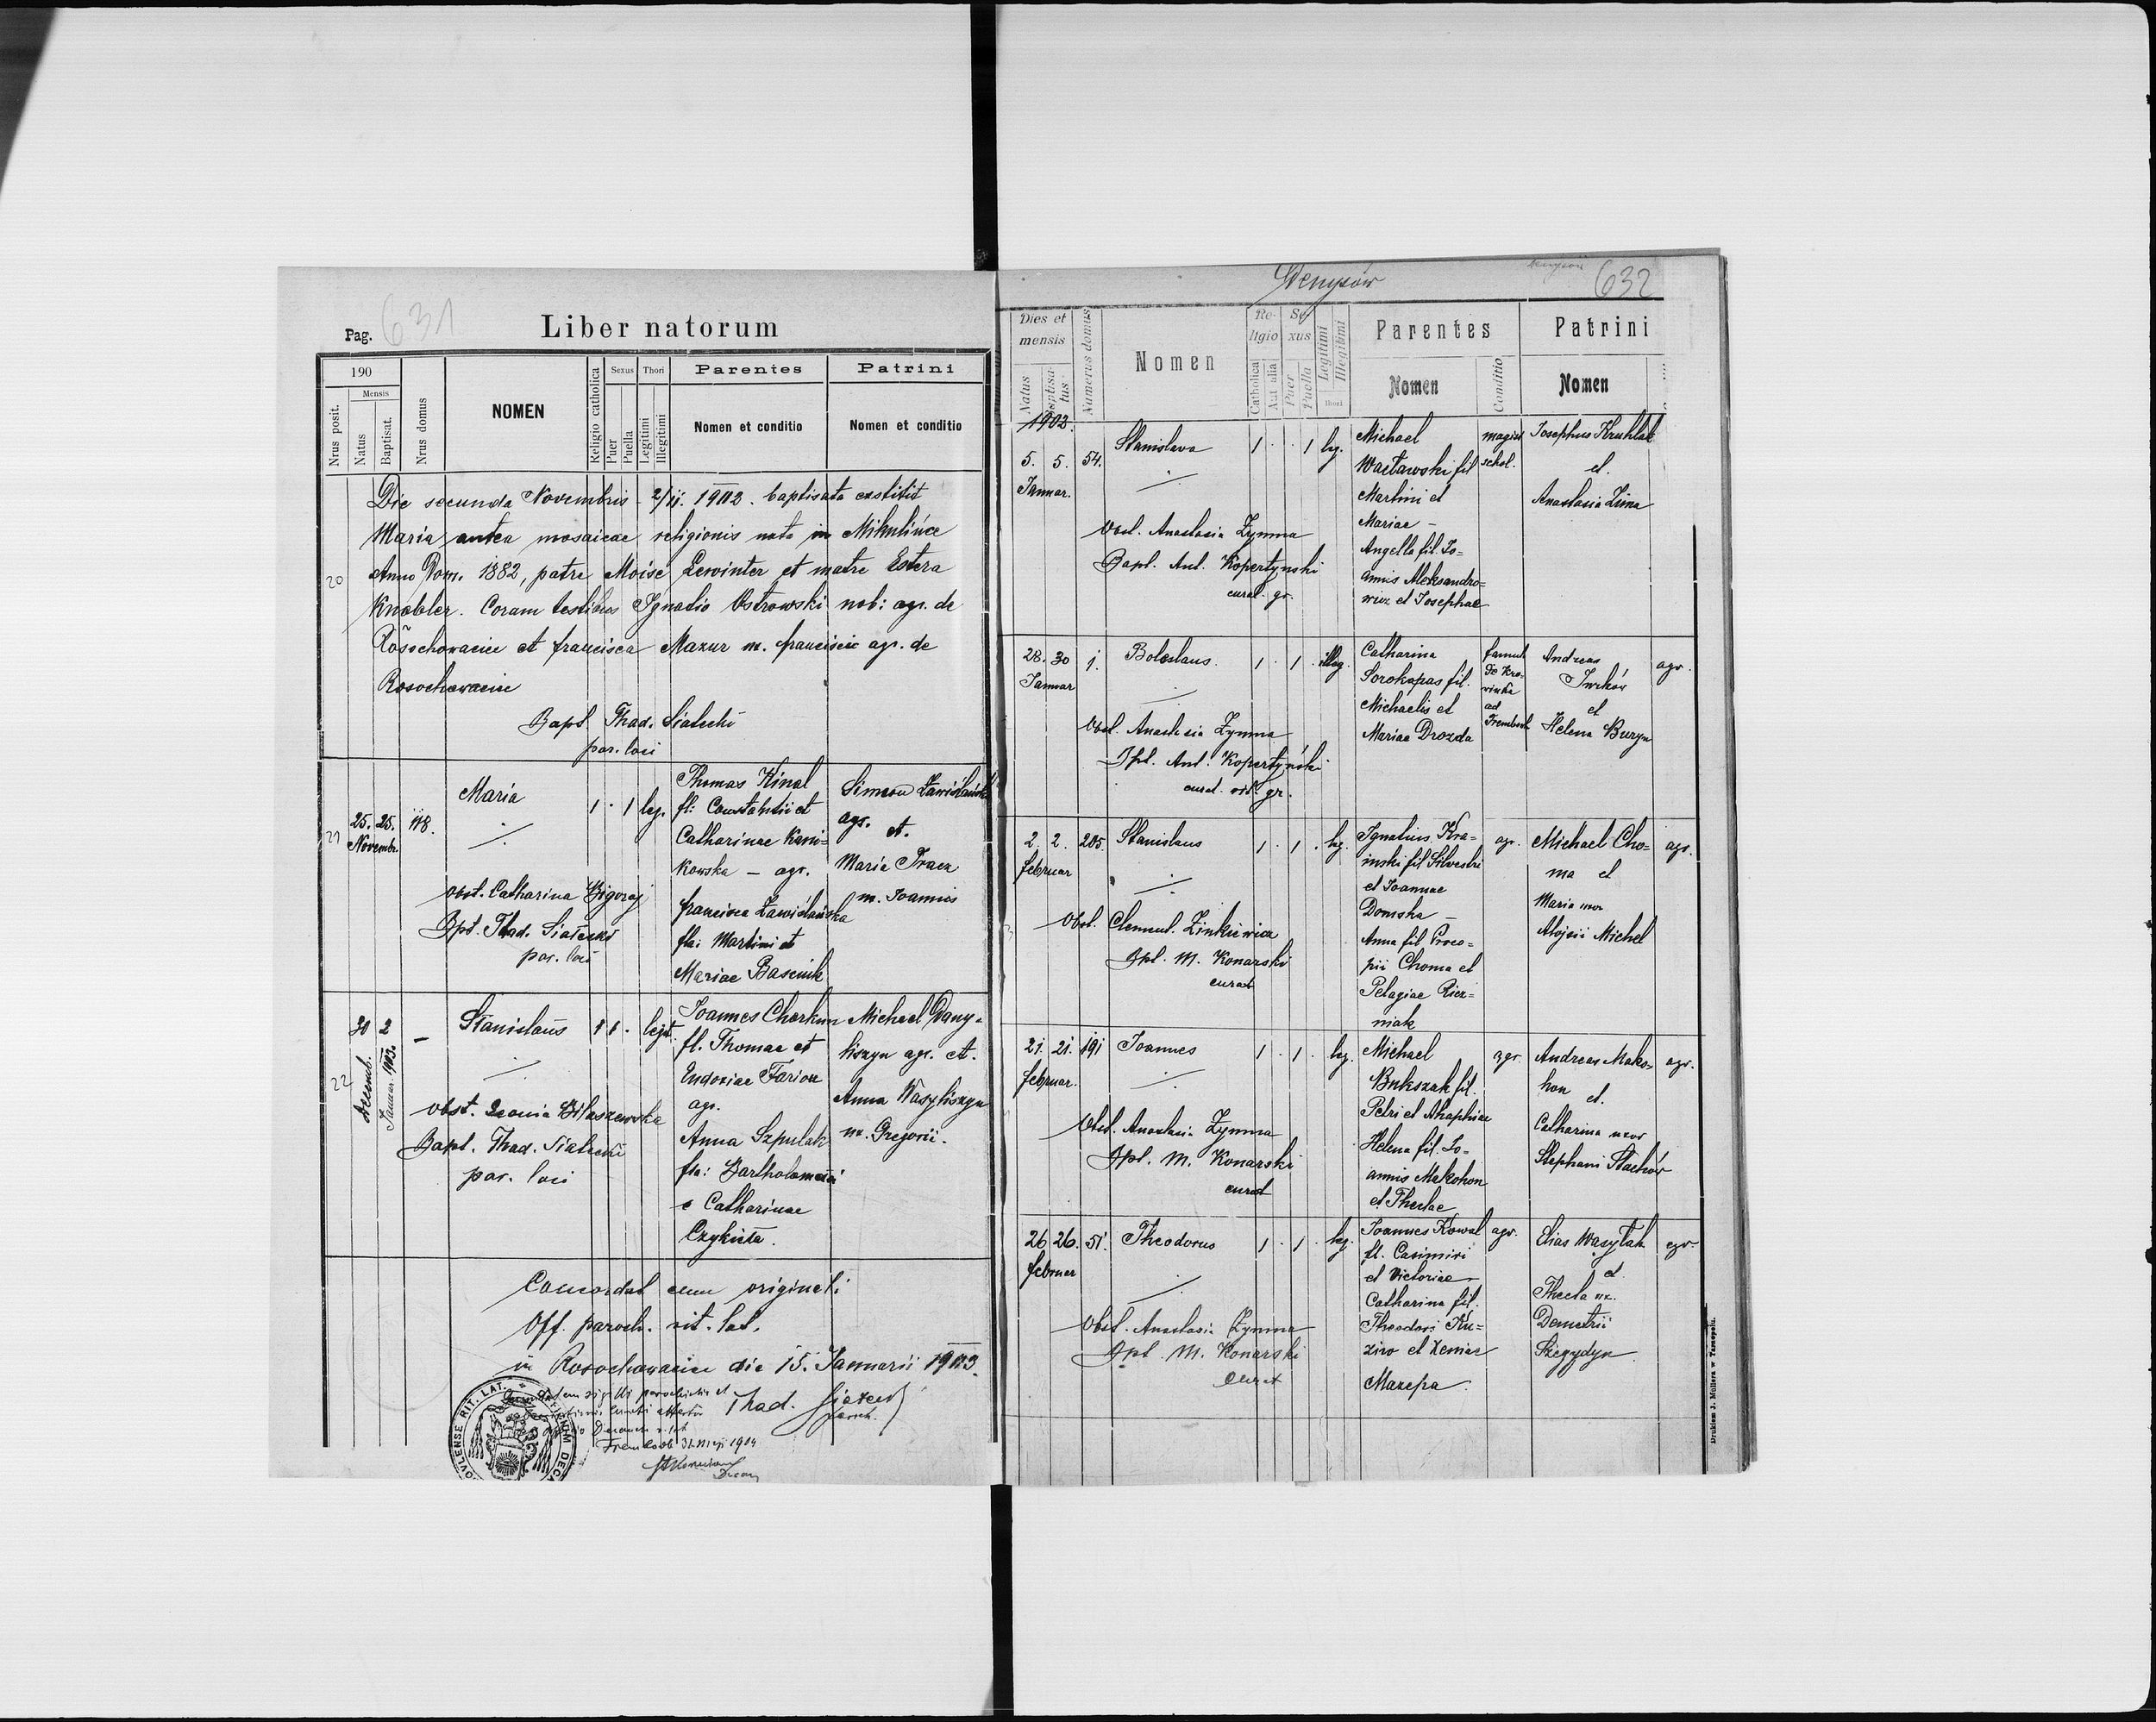 Pag. 631
Liber natorum
190
Nrus posit.
Mensis
Natus
Baptisat.
Nrus domus
NOMEN
Religio catholica
Sexus
Puer
Puella
Thori
Legitimi
Illegitimi
Parentes
Nomen et conditio
Patrini
Nomen et conditio
20
Die secunda Novembris 2/ii. 1902. baptisata exstitit
Maria antea mosaicae religionis nata in Mikulińce
Anno Dom. 1882, patre Moise Lewinter et matre Estera
Knobler. Coram testibus Ignatio Ostrowski nob: agr. de
Rosochowaciec et francisca Mazur m. francisci agr. de
Rosochowaciec
Bapt. Thad. Siatecki
par. loci
21
25. 25.
Novembr.
118.
Maria
obst. Catharina Bigoraj
Bpt. Thad. Siatecki
par. loci
1 . 1 leg.
Thomas Kinal
fl: Constantii et
Catharinae Kani=
kowska — agr.
francisca Zawiślańska
fla: Martini et
Mariae Basciuk
Simeon Zawiślański
agr. et.
Maria Tracz
m. Joannis
22
30 2
Decemb.
Januar. 1903.
—
Stanislaus
obst.
Bapt. Thad. Siatecki
par. loci
1 1 . legt.
Joannes Charkun
fl. Thomae et
Eudoxiae Farion
agr.
Anna Szpulak
fla: Bartholomaei
e Catharinae
Czykieta.
Michael Dany=
liszyn agr. et.
Anna Wasyliszyn
m. Gregorii.
Concordat cum originali
Off. paroch. rit. lat.
in Rosochowaciec die 15. Januarii 1903.
Thad. Siatecki
paroch.
sigilli parochialis et
Trembowla 31. Maji 1904
Decan
632
Denysów
Dies et
mensis
Natus
Baptisa-
tus
Numerus domus
Nomen
Re-
ligio
Catholica
Aut alia
Se-
xus
Puer
Puella
Legitimi
Illegitimi
thori
Parentes
Nomen
Conditio
Patrini
Nomen
1903.
5. 5. 54.
Januar.
Stanislava
Obst. Anastasia Zymna
Bapt. Ant. Kopertynski
curat. gr.
1 . . 1 leg.
Michael
Wacławski fil
Martini et
Mariae —
Angella fil. Jo=
annis Aleksandro=
wicz et Josephae
magist.
schol.
Josephus Kruhlak
et.
Anastasia Zima
28. 30 1.
Januar
Boleslaus.
Obst. Anastasia Zymna
Bpt. Ant. Kopertyński
curat. rit. gr.
1 . 1 . illeg.
Catharina
Sorokapas fil.
Michaelis et
Mariae Drozda
famul.
de Kro-
winka
ad
Trembowl.
Andreas
Jurków
et
Helena Buryn
agr.
2. 2. 205.
februar
Stanislaus
Obst. Clement. Zinkiewicz
Bpt. M. Konarski
curat
1 . 1 . leg.
Ignatius Kra=
inski fil Silvestri
et Joannae
Domska —
Anna fil Proco=
pii Choma et
Pelagiae Riez=
niak
agr.
Michael Cho=
ma et
Maria uxor
Alojsii Michel
agr.
21. 21. 191
februar.
Joannes
Obst. Anastasia Zymna
Bpt. M. Konarski
curat
1 . 1 . leg.
Michael
Bukszak fil.
Petri et Ahaphiae
Helena fil. Jo=
annis Makohon
et Theclae
agr.
Andreas Mako=
hon et.
Catharina uxor
Stephani Stachów
agr.
26 26. 51.
februar
Theodorus
Obst. Anastasia Zymna
Bpt. M. Konarski
Curat
1 . 1 . leg.
Joannes Kowal
fl. Casimiri
et Victoriae —
Catharina fil.
Theodori Ku=
ziro et Xeniae
Mazepa.
agr.
Elias Wasylak
et
Thecla ux.
Demetrii
Szegydyn
agr.
Drukiem J. Mullera w Tarnopolu.